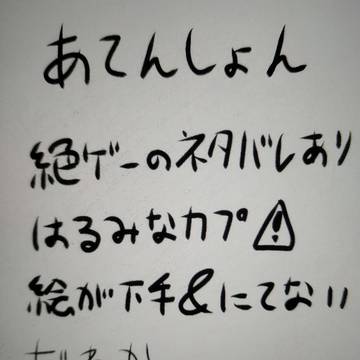 あてんしょん
絶ゲーのネタバレあり
はるみなカプ⚠
絵が下手&にてない